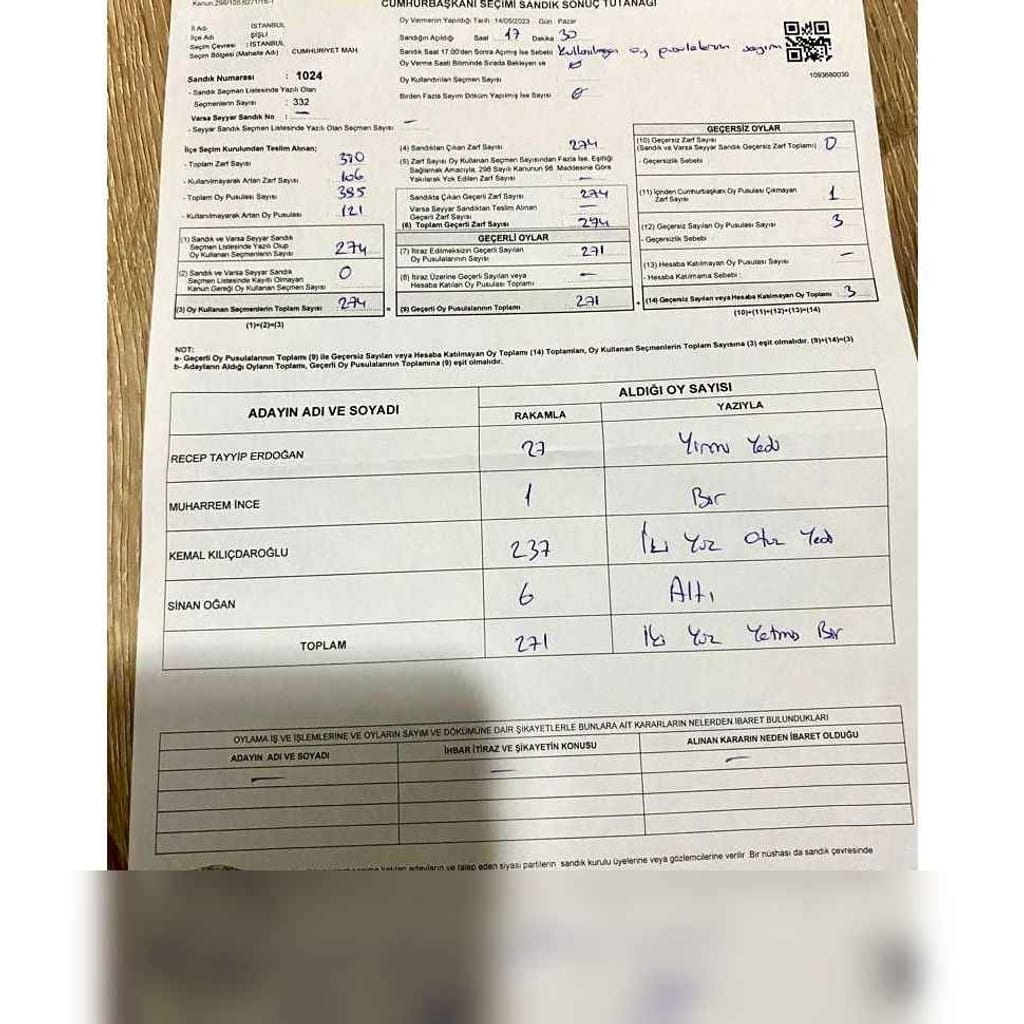 Kanun 298/105,6271/16-1
CUMHURBAŞKANI SEÇİMİ SANDIK SONUÇ TUTANAĞI
İl Adı : İSTANBUL
İlçe Adı : ŞİŞLİ
Seçim Çevresi : İSTANBUL
Seçim Bölgesi (Mahalle Adı) : CUMHURİYET MAH
Sandık Numarası : 1024
- Sandık Seçmen Listesinde Yazılı Olan
Seçmenlerin Sayısı : 332
Varsa Seyyar Sandık No : —
- Seyyar Sandık Seçmen Listesinde Yazılı Olan Seçmen Sayısı —
Oy Vermenin Yapıldığı Tarih 14/05/2023 Gün : Pazar
Sandığın Açıldığı Saat 17 Dakika 30
Sandık Saat 17:00'den Sonra Açılmış İse Sebebi kullanılmayan oy pusulalarının sayımı
Oy Verme Saati Bitiminde Sırada Bekleyen ve
Oy Kullandırılan Seçmen Sayısı
Birden Fazla Sayım Döküm Yapılmış İse Sayısı
1093680030
İlçe Seçim Kurulundan Teslim Alınan;
- Toplam Zarf Sayısı 370
- Kullanılmayarak Artan Zarf Sayısı 106
- Toplam Oy Pusulası Sayısı 395
- Kullanılmayarak Artan Oy Pusulası 121
(1) Sandık ve Varsa Seyyar Sandık
Seçmen Listesinde Yazılı Olup
Oy Kullanan Seçmenlerin Sayısı 274
(2) Sandık ve Varsa Seyyar Sandık
Seçmen Listesinde Kayıtlı Olmayan
Kanun Gereği Oy Kullanan Seçmen Sayısı 0
(3) Oy Kullanan Seçmenlerin Toplam Sayısı 274 =
(1)+(2)=(3)
(4) Sandıktan Çıkan Zarf Sayısı 274
(5) Zarf Sayısı Oy Kullanan Seçmen Sayısından Fazla İse, Eşitliği
Sağlamak Amacıyla, 298 Sayılı Kanunun 98. Maddesine Göre
Yakılarak Yok Edilen Zarf Sayısı —
Sandıkta Çıkan Geçerli Zarf Sayısı 274
Varsa Seyyar Sandıktan Teslim Alınan
Geçerli Zarf Sayısı —
(6) Toplam Geçerli Zarf Sayısı 274
GEÇERLİ OYLAR
(7) İtiraz Edilmeksizin Geçerli Sayılan
Oy Pusulasının Sayısı 271
(8) İtiraz Üzerine Geçerli Sayılan veya
Hesaba Katılan Oy Pusulası Toplamı —
(9) Geçerli Oy Pusulalarının Toplamı 271 +
GEÇERSİZ OYLAR
(10) Geçersiz Zarf Sayısı
(Sandık ve Varsa Seyyar Sandık Geçersiz Zarf Toplamı) 0
- Geçersizlik Sebebi
(11) İçinden Cumhurbaşkanı Oy Pusulası Çıkmayan
Zarf Sayısı 1
(12) Geçersiz Sayılan Oy Pusulası Sayısı 3
- Geçersizlik Sebebi
(13) Hesaba Katılmayan Oy Pusulası Sayısı —
- Hesaba Katılmama Sebebi :
(14) Geçersiz Sayılan veya Hesaba Katılmayan Oy Toplamı 3
(10)+(11)+(12)+(13)=(14)
NOT:
a- Geçerli Oy Pusulalarının Toplamı (9) ile Geçersiz Sayılan veya Hesaba Katılmayan Oy Toplamı (14) Toplamları, Oy Kullanan Seçmenlerin Toplam Sayısına (3) eşit olmalıdır. (9)+(14)=(3)
b- Adayların Aldığı Oyların Toplamı, Geçerli Oy Pusulalarının Toplamına (9) eşit olmalıdır.
ADAYIN ADI VE SOYADI ALDIĞI OY SAYISI
RAKAMLA YAZIYLA
RECEP TAYYİP ERDOĞAN 27 Yirmi Yedi
MUHARREM İNCE 1 Bir
KEMAL KILIÇDAROĞLU 237 İki Yüz Otuz Yedi
SİNAN OĞAN 6 Altı
TOPLAM 271 İki Yüz Yetmiş Bir
OYLAMA İŞ VE İŞLEMLERİNE VE OYLARIN SAYIM VE DÖKÜMÜNE DAİR ŞİKAYETLERLE BUNLARA AİT KARARLARIN NELERDEN İBARET BULUNDUKLARI
ADAYIN ADI VE SOYADI İHBAR İTİRAZ VE ŞİKAYETİN KONUSU ALINAN KARARIN NEDEN İBARET OLDUĞU
— — —
adayların ve talep eden siyasi partilerin sandık kurulu üyelerine veya gözlemcilerine verilir. Bir nüshası da sandık çevresinde